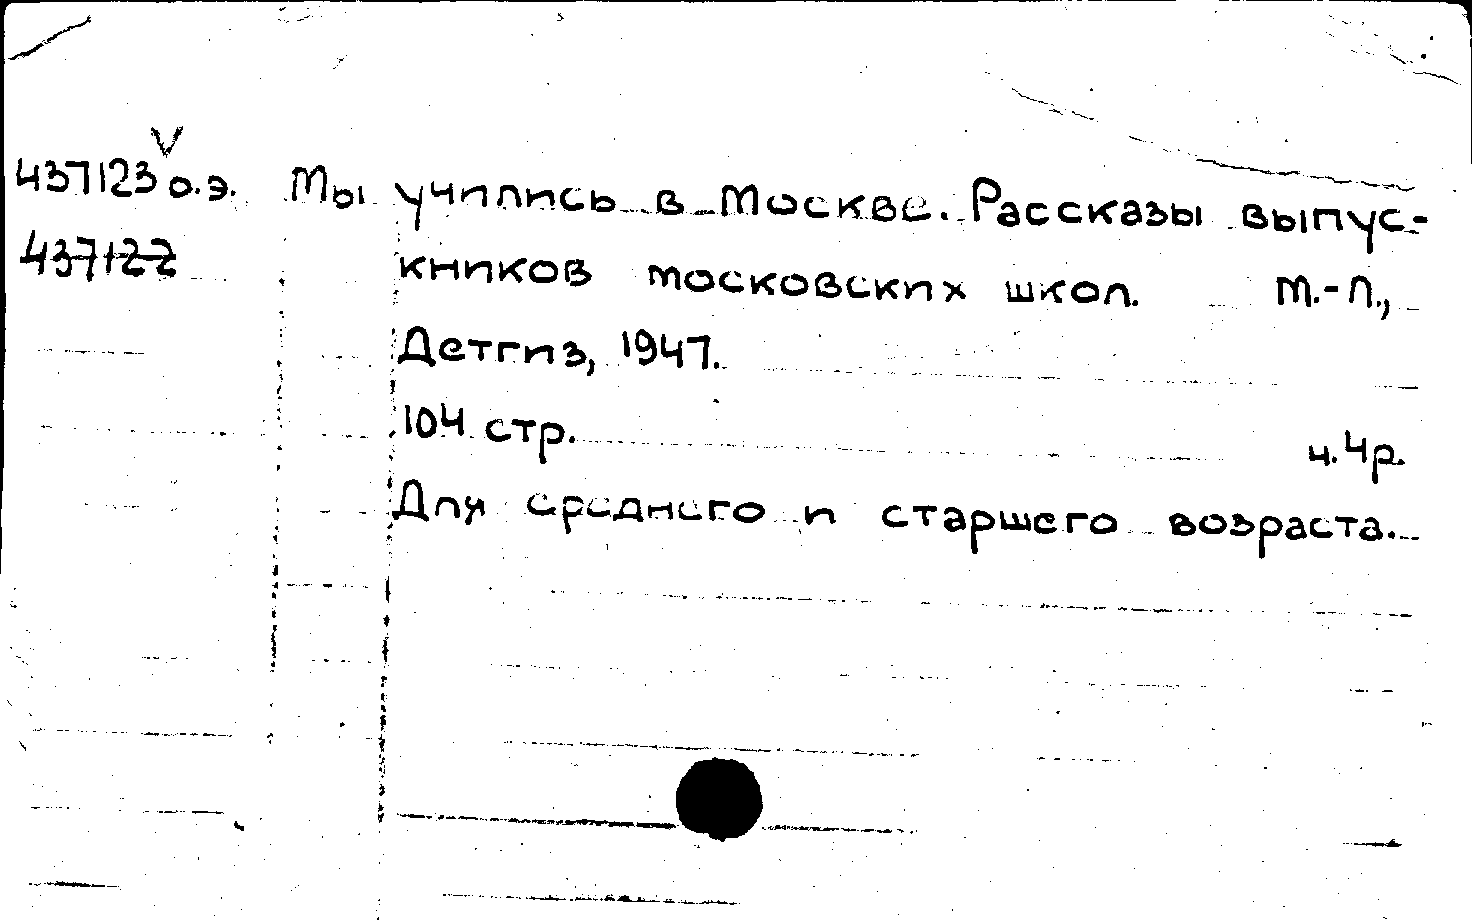 V
437123 о.э. Мы учились в Москве. Рассказы выпус-
437122 кников московских школ. М.-Л.,
Детгиз, 1947.
104 стр. ц.4р.
Для среднего и старшего возраста.